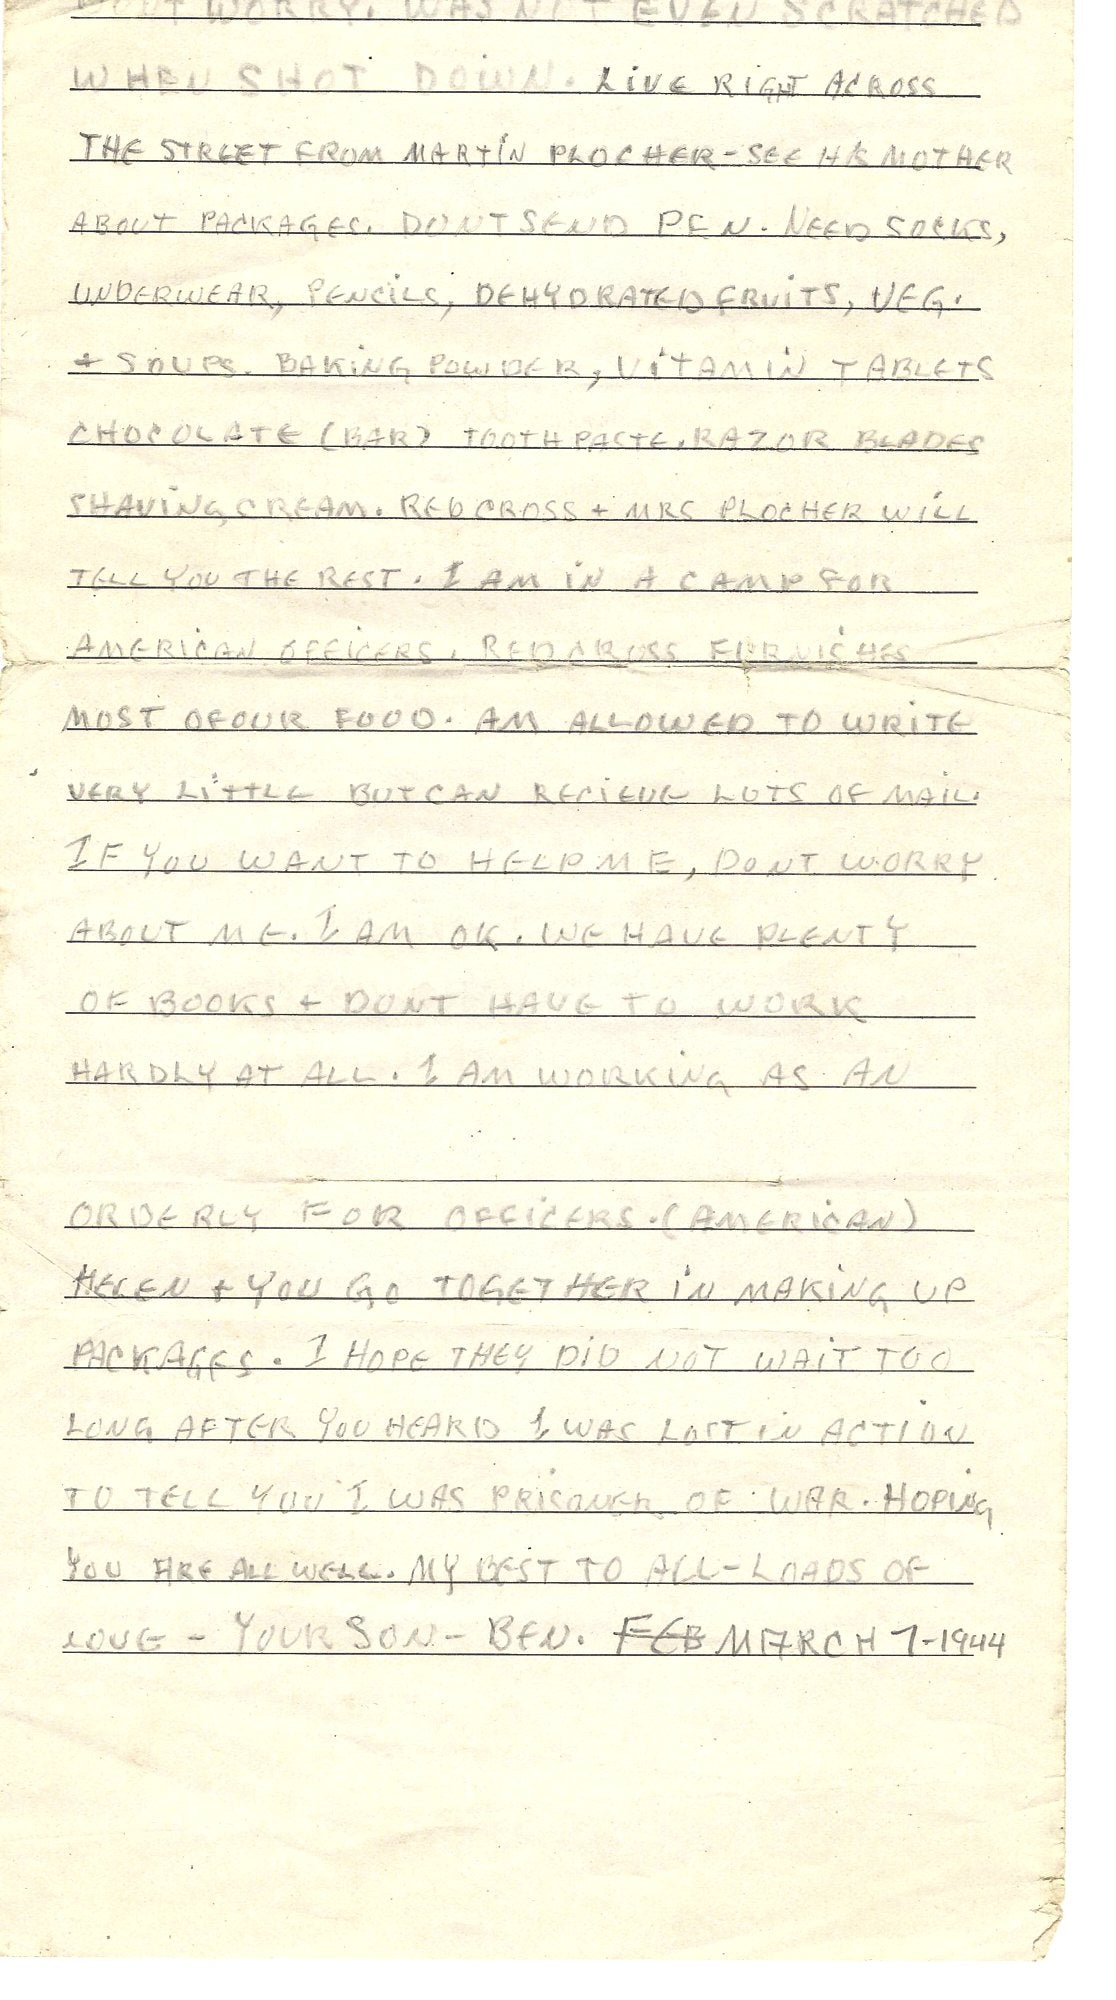 DONT WORRY. WAS NOT EVEN SCRATCHED
WHEN SHOT DOWN. LIVE RIGHT ACROSS
THE STREET FROM MARTIN PLOCHER - SEE HIS MOTHER
ABOUT PACKAGES. DONT SEND PEN. NEED SOCKS,
UNDERWEAR, PENCILS, DEHYDRATED FRUITS, VEG.
+ SOUPS. BAKING POWDER, VITAMIN TABLETS
CHOCOLATE (BAR) TOOTHPASTE, RAZOR BLADES
SHAVING CREAM. RED CROSS + MRS PLOCHER WILL
TELL YOU THE REST. I AM IN A CAMP FOR
AMERICAN OFFICERS. RED CROSS FURNISHES
MOST OF OUR FOOD. AM ALLOWED TO WRITE
VERY LITTLE BUT CAN RECIEVE LOTS OF MAIL.
IF YOU WANT TO HELP ME, DONT WORRY
ABOUT ME. I AM OK. WE HAVE PLENTY
OF BOOKS + DONT HAVE TO WORK
HARDLY AT ALL. I AM WORKING AS AN
ORDERLY FOR OFFICERS. (AMERICAN)
HELEN + YOU GO TOGETHER IN MAKING UP
PACKAGES. I HOPE THEY DID NOT WAIT TOO
LONG AFTER YOU HEARD I WAS LOST IN ACTION
TO TELL YOU I WAS PRISONER OF WAR. HOPING
YOU ARE ALL WELL. MY BEST TO ALL - LOADS OF
LOVE - YOUR SON - BEN. FEB MARCH 7-1944